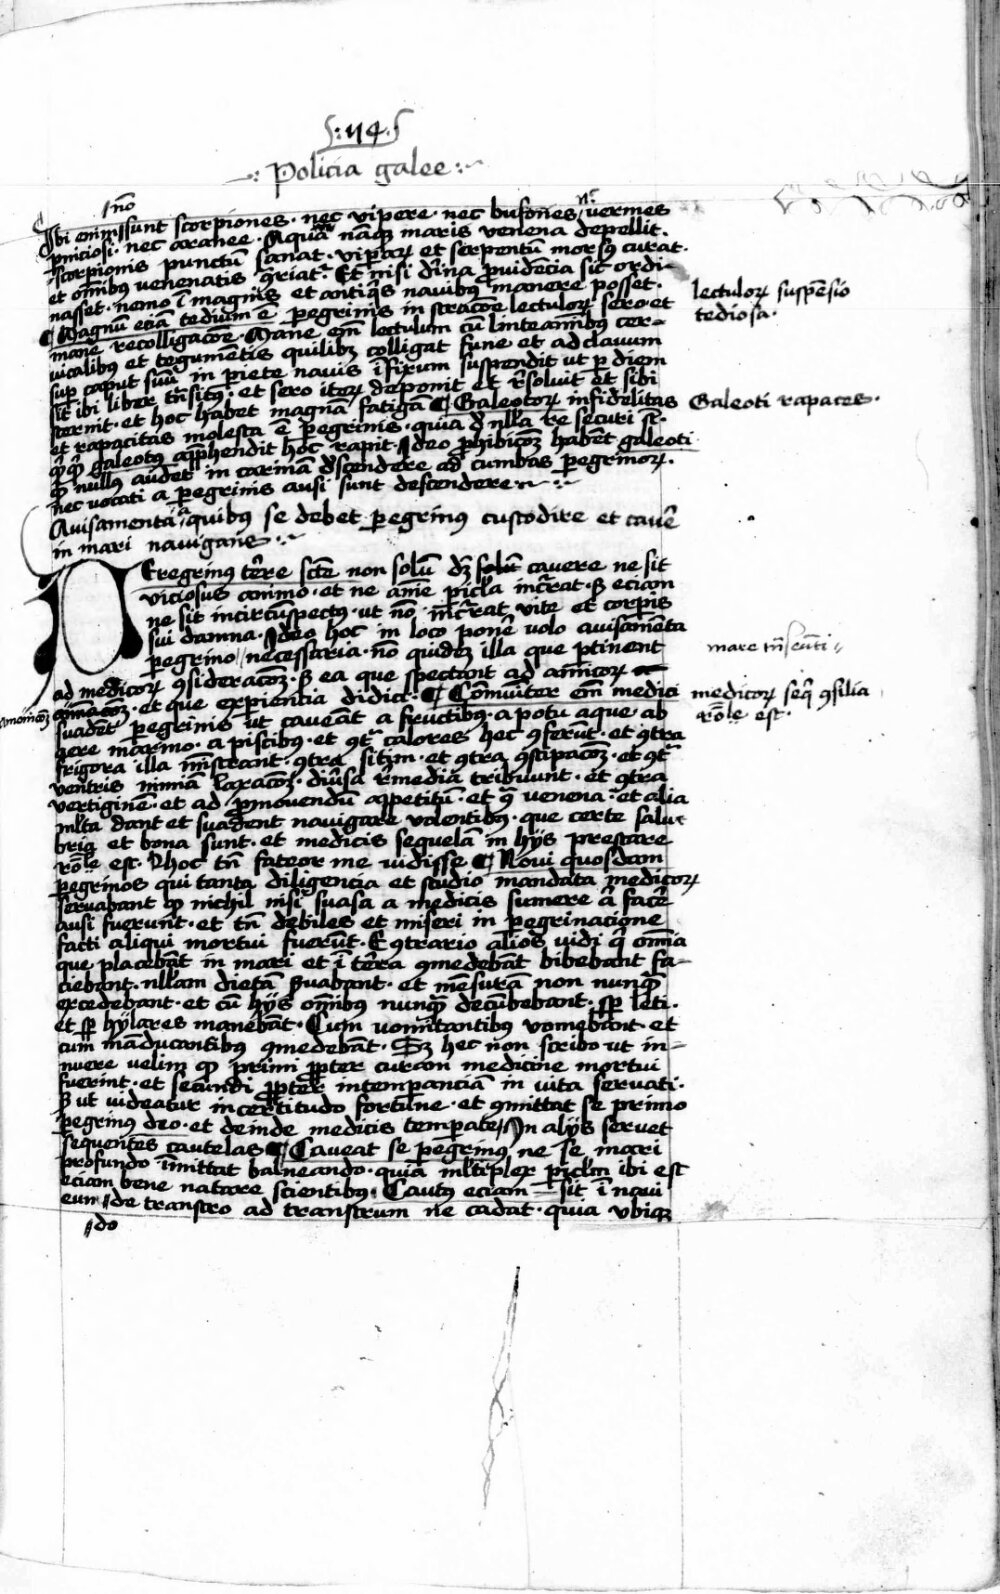 114
Policia galee
Ibi enim sunt scorpiones · nec vipere · nec bufones nec vermes
pniciosi · nec aranee · Aqua namq maris venena depellit ·
scorpionis punctum sanat · vipar et serpentum morsus curat ·
et omnibus venenatis griatr · Et nisi dina providencia sic ordi-
nasset · nemo i magnis et antiqis navibus manere posset ·
lectulor suspensio
tediosa ·
Magnum eciam tedium e peregrinis in stracone lectulor sero et
mane recolligacone · Mane em lectulum cum linteaminibus cer-
vicalibus et tegumentis quilibz colligat fune et ad clavum
sup caput suum in pariete navis ifixum suspendit ut p diem
sit ibi liber transitus · et sero iterum deponit et rsoluit et sibi
sternit · et hoc habet magnam fatigam Galeotor infidelitas
Galeoti rapaces ·
et rapacitas molesta e peregrinis · quia d nlla re securi st ·
qq galeotus apphendit hoc rapit · Ideo phibicoz habet galeoti
q nullus audet in carinam descendere ad cumbas peregrinor ·
nec vocati a peregrinis ausi sunt descendere
Avisamenta a quibus se debet peregrinus custodire et cavere
in mari navigans
Peregrinus terre scte non solum dz cavere ne sit
viciosus animo · et ne anime picla incrat · s eciam
ne sit incircumspectus · ut non incrat vite et corpis
sui damna · Ideo hoc in loco ponere volo avisamenta
peregrino necessaria · no quidez illa que ptinent
mare tnseunti
ad medicor gsideracoz · s ea que spectant ad
et que expiencia didici · Commiter em medici
medicor seq gsilia
role est ·
suadet peregrinis ut caveant a fructibus · a potu aque ab
aere marino · a piscibus · et gt calores hec gferunt · et gtra
frigora illa ministrant · gtra sitim · et gtra gstipacoz · et gt
ventris nimiam laxacoz · diversa rmedia tribuunt · et gtra
vertiginem · et ad pmovendum appetitum · et g venena · et alia
mlta dant et suadent navigare volentibus · que certe salu
bria et bona sunt · et medicis sequelam in hijs prestare
role est · hoc tn fateor me vidisse Novi quosdam
peregrinos qui tanta diligencia et studio mandata medicor
servabant q nichil nisi suasa a medicis sumere a facere
ausi fuerunt · et tn debiles et miseri in peregrinacione
facti aliqui mortui fuerunt · E gtrario alios vidi q omnia
que placebant in mari et i terra gmedebant bibebant fa-
ciebant · nllam dietam svabant · et mensuram non nunq
excedebant · et cum hijs omnibus nunq decumbebant · sp leti ·
et sp hylares manebant · Cum vomitantibus vomebant · et
cum manducantibus gmedebant · Sz hec non scribo ut in-
nuere velim q primi ppter curam medicine mortui
fuerint · et secundi ppter intempanciam in vita servati ·
s ut videatur incertitudo fortune · et gmittat se primo
peregrinus deo · et deinde medicis temperate In alijs servet
sequentes cautelas Caveat se peregrinus ne se mari
profundo imittat balneando · quia mltiplex piclm ibi est
eciam bene natare scientibus · Cautus eciam sit i navi
eun de transtro ad transtrum ne cadat · quia ubiqz
do